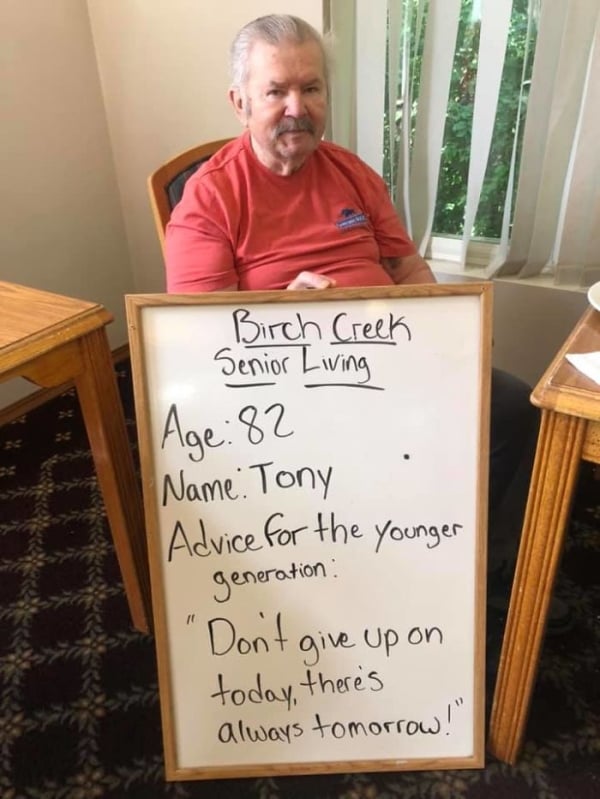 Birch Creek
Senior Living
Age: 82
Name: Tony
Advice for the younger
generation:
"Don't give up on
today, there's
always tomorrow!"